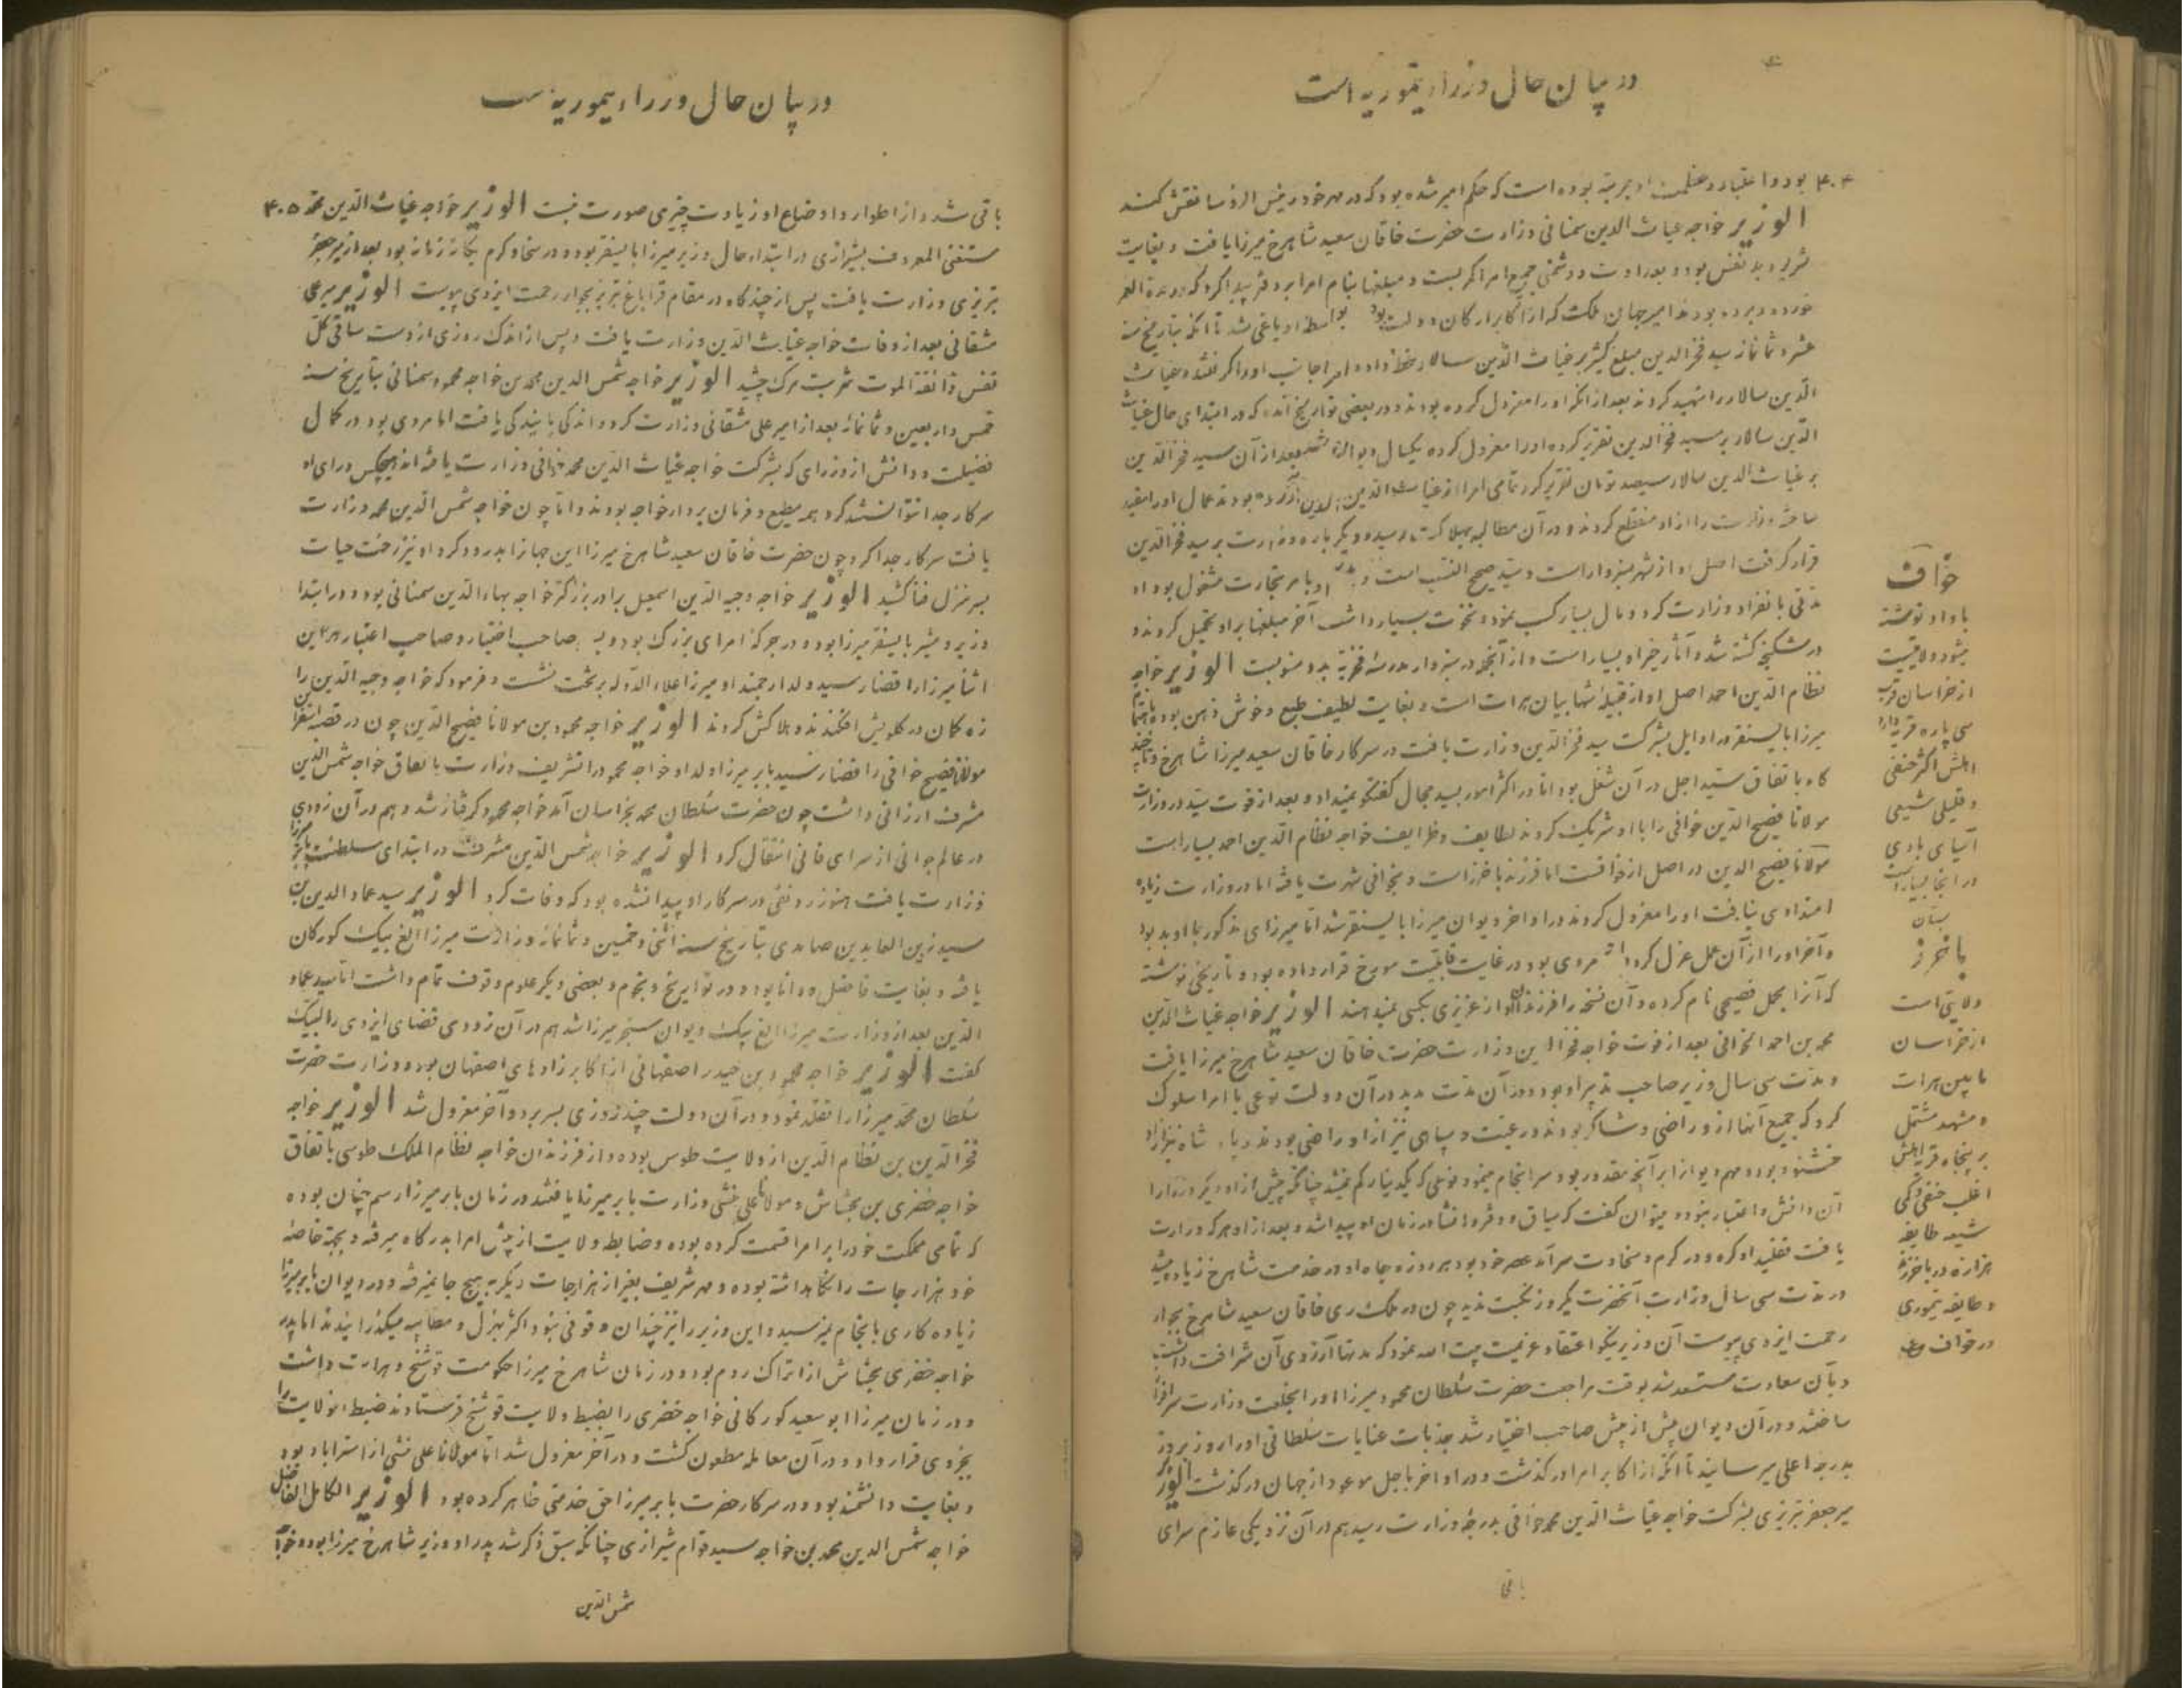 در بیان حال وزراء تیموریه است
۴۰۴ بود و اعتبار و عظمت او بمرتبه بوده است که حکم امیر شده بود که در مهر خود رئیس الرؤسا نقش کنند
الوزیر خواجه غیاث الدین سمنانی وزارت حضرت خاقان سعید شاهرخ میرزا یافت و بغایت
شریر و بد نفس بود و بعداوت و دشمنی جمیع امرا کمر بست و مبلغها بنام امرا بر دفتر پیدا کرد که در مدة العمر
خورده و برده بودند امیر جهان ملک که از اکابر ارکان دولت بود بواسطه او یاغی شد تا آنکه بتاریخ سنه
عشر و ثمانمائه سید فخر الدین مبلغ کثیر بر غیاث الدین سالار خط داده امرا جانب او را گرفتند و غیاث
الدین سالار را شهید کردند بعد از آنکه او را معزول کرده بودند و در بعضی تواریخ آمده که در ابتدای حال غیاث
الدین سالار بر سید فخر الدین تقریر کرده او را معزول کرده یکسال دیوان بعد از آن سید فخر الدین
بر غیاث الدین سالار سیصد تومان تقریر کرد تمامی امرا از غیاث الدین آزرده بودند عمال او را مقید
ساخته وزارت را از او منقطع کردند و در آن مطالبه بهلاکت رسید و دیگر باره وزارت بر سید فخر الدین
قرار گرفت اصل او از شهر سبزوار است و سید صحیح النسب است و او بامر تجارت مشغول بود او
مدتی بانفراد وزارت کرد و مال بسیار کسب نمود و نخوت بسیار داشت آخر مبلغها بر او تحمیل کردند و
در شکنجه کشته شد و آثار خیر او بسیار است و از آنجمله در سبزوار مدرسه فخریه بدو منسوبست الوزیر خواجه
نظام الدین احمد اصل او از قبیله شهابیان هرات است و بغایت لطیف طبع و خوش ذهن بوده باهتمام
میرزا بایسنقر در اوایل بشرکت سید فخر الدین وزارت یافت در سرکار خاقان سعید میرزا شاهرخ و تا چند
گاه باتفاق سید اجل در آن شغل بود اما در اکثر امور سید مجال گفتگو نمیداد و بعد از فوت سید در وزارت
مولانا فصیح الدین خوافی را با او شریک کردند لطایف و ظرایف خواجه نظام الدین احمد بسیار است
مولانا فصیح الدین در اصل از خوافست اما فرزند باخرز است و بخوافی شهرت یافته اما در وزارت زیاده
امتدادی نیافت او را معزول کردند در اواخر دیوان میرزا بایسنقر شد اما میرزای مذکور با او بد بود
و آخر او را از آن عمل عزل کرد مردی بود در غایت قابلیت مورخ قرار داده بود و تاریخی نوشته
که آنرا مجمل فصیحی نام کرده و آن نسخه را فرزندان او از عزیزی بکسی نمیدهند الوزیر خواجه غیاث الدین
محمد بن احمد الخوافی بعد از فوت خواجه فخر الدین وزارت حضرت خاقان سعید شاهرخ میرزا یافت
و مدت سی سال وزیر صاحب تدبیر او بود و در آن مدت مدید در آن دولت نوعی با امرا سلوک
کرد که جمیع آنها از و راضی و شاکر بودند و رعیت و سپاهی نیز از او راضی بودند پادشاه نیز از او
خشنود بود و مهم دیوان را بر آنچه مقدور بود سر انجام مینمود نوعی که یکدینار کم نمیشد چنانکه پیش از او دیگر وزرا را
آن دانش و اعتبار نبود و میتوان گفت که سیاق و دفتر و انشا در زمان او پیدا شد و بعد از او هر که وزارت
یافت تقلید او کرد و در کرم و سخاوت سرآمد عصر خود بود هر روزه جاه او در خدمت شاهرخ زیاده میشد
در مدت سی سال وزارت آنحضرت یکروز نکبت ندید چون در ملک ری خاقان سعید شاهرخ بجوار
رحمت ایزدی پیوست آن وزیر نیکو اعتقاد عزیمت بیت الله نمود که مدتها آرزوی آن شرافت داشت
و بآن سعادت مستسعد شد بوقت مراجعت حضرت سلطان محمود میرزا او را بخلعت وزارت سرافراز
ساختند و در آن دیوان بیش از پیش صاحب اختیار شد جذبات عنایات سلطانی او را روز بروز
بدرجه اعلی میرسانید تا آنکه از اکابر امرا در گذشت و در اواخر باجل موعود از جهان در گذشت الوزیر
میر جعفر تبریزی بشرکت خواجه غیاث الدین محمد خوافی بدرجه وزارت رسید هم در آن نزدیکی عازم سرای
باقی
خواف
با واو نوشته
میشود ولایتیست
از خراسان قریب
سی پاره قریه دارد
اهلش اکثر حنفی
و قلیلی شیعی
آسیای بادی
در آنجا بسیار است
باخرز
ولایتی است
از خراسان
مابین هرات
و مشهد مشتمل
بر پنجاه قریه اهلش
اغلب حنفی و کمی
شیعه طایفه
هزاره در باخرزند
و طایفه تیموری
در خواف
در بیان حال وزراء تیموریه است
باقی شد و از اطوار و اوضاع او زیادت چیزی صورت نبست الوزیر خواجه غیاث الدین محمد ۴۰۵
مستغنی المعروف بشیرازی در ابتداء حال وزیر میرزا بایسنقر بود و در سخا و کرم یگانه زمانه بود بعد از میر جعفر
تبریزی وزارت یافت پس از چندگاه در مقام قراباغ تبریز بجوار رحمت ایزدی پیوست الوزیر میر علی
شقانی بعد از وفات خواجه غیاث الدین وزارت یافت و پس از اندک روزی از دست ساقی کل
نفس ذائقة الموت شربت مرگ چشید الوزیر خواجه شمس الدین محمد بن خواجه محمود سمنانی بتاریخ سنه
خمس و اربعین و ثمانمائه بعد از امیر علی شقانی وزارت کرد و اندکی پایندگی یافت اما مردی بود در کمال
فضیلت و دانش از وزرای که بشرکت خواجه غیاث الدین محمد خوافی وزارت یافته اند هیچکس ورای او
سرکار جدا نتوانستند کرد همه مطیع و فرمان بردار خواجه بودند و اما چون خواجه شمس الدین محمد وزارت
یافت سرکار جدا کرد چون حضرت خاقان سعید شاهرخ میرزا این جهانرا بدرود کرد او نیز رخت حیات
بسر منزل فنا کشید الوزیر خواجه وجیه الدین اسمعیل برادر بزرگتر خواجه بهاء الدین سمنانی بود و در ابتدا
وزیر و مشیر بایسنقر میرزا بود و در جرگه امرای بزرگ بود و صاحب اختیار و صاحب اعتبار در این
اثنا میرزا را قضا رسید ولد ارجمند او میرزا علاء الدوله بر تخت نشست و فرمود که خواجه وجیه الدین را
زه کمان در گلویش افکندند و هلاکش کردند الوزیر خواجه محمود بن مولانا فصیح الدین چون در قصبه
مولانا فصیح خوافی را قضا رسید بابر میرزا ولد او خواجه محمود را تشریف وزارت باتفاق خواجه شمس الدین
مشرف ارزانی داشت چون حضرت سلطان محمد بخراسان آمد خواجه محمود گرفتار شد و هم در آن زودی
در عالم جوانی از سرای فانی انتقال کرد الوزیر خواجه شمس الدین مشرف در ابتدای سلطنت بابر میرزا
وزارت یافت هنوز رونقی در سرکار او پیدا نشده بود که وفات کرد الوزیر سید عماد الدین بن
سید زین العابدین بتاریخ سنه اثنی و خمسین و ثمانمائه وزارت میرزا الغ بیک کورکان
یافته و بغایت فاضل و دانا بود و در تواریخ و نجوم و بعضی دیگر علوم وقوف تمام داشت اما سید عماد
الدین بعد از وزارت میرزا الغ بیک دیوان سنجر میرزا شد هم در آن زودی قضای ایزدی را لبیک
گفت الوزیر خواجه محمود بن حیدر اصفهانی از اکابر زادهای اصفهان بود و وزارت حضرت
سلطان محمد میرزا را تقلد نمود و در آن دولت چند روزی بسر برد و آخر معزول شد الوزیر خواجه
فخر الدین بن نظام الدین از ولایت طوس بوده و از فرزندان خواجه نظام الملک طوسی باتفاق
خواجه خضری بن بخشایش و مولانا علی منشی وزارت بابر میرزا یافتند در زمان بابر میرزا رسم چنان بوده
که تمامی مملکت خود را بر امرا قسمت کرده بوده و ضابط ولایت از پیش امرا بدرگاه میرفته و بجهة خاصه
خود هزار جات را نگاهداشته بوده و مهر شریف بغیر از هزارجات دیگر به هیچ جا نمیرفته و در دیوان بابر میرزا
زیاده کاری بانجام نمیرسید و این وزیر را نیز چندان وقوفی نبود اکثر بهزل و مطایبه میگذرانیدند اما پدر
خواجه خضری بخشایش از اتراک روم بود و در زمان شاهرخ میرزا حکومت فوشنج و هرات داشت
و در زمان میرزا ابو سعید کورکانی خواجه خضری را بضبط ولایت فوشنج فرستادند ضبط انولایت را
بخردی قرار داد و در آن معامله مطعون گشت و در آخر معزول شد اما مولانا علی منشی از استراباد بود
و بغایت دانشمند بود و در سرکار حضرت بابر میرزا حق خدمتی ظاهر کرده بود الوزیر الکامل الفاضل
خواجه شمس الدین محمد بن خواجه سید قوام شیرازی چنانکه سبق ذکر شد پدر او وزیر شاهرخ میرزا بود و خواجه
شمس الدین